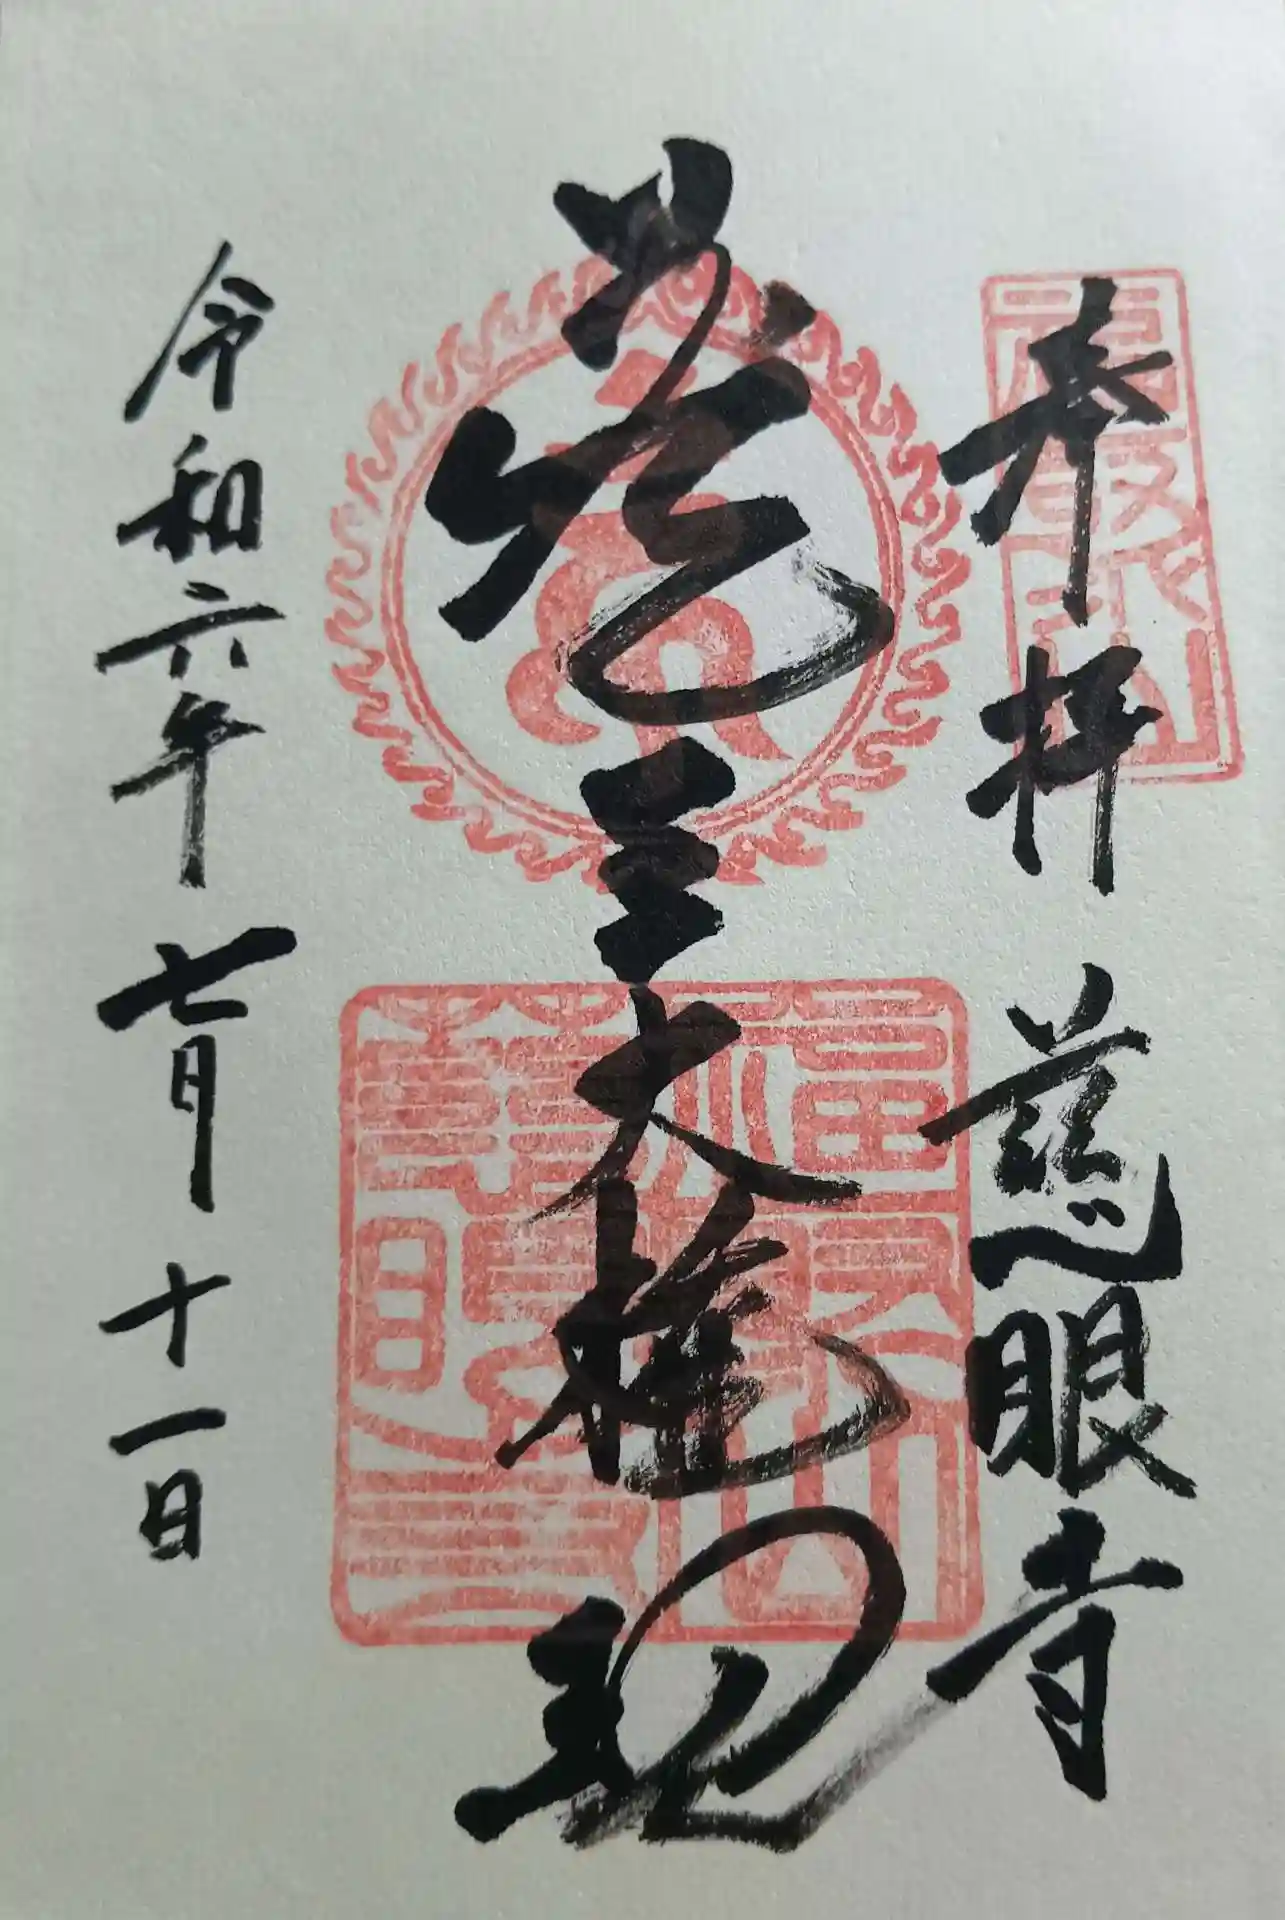 奉拝 慈眼寺
蔵王大権現
令和六年 七月 十一日